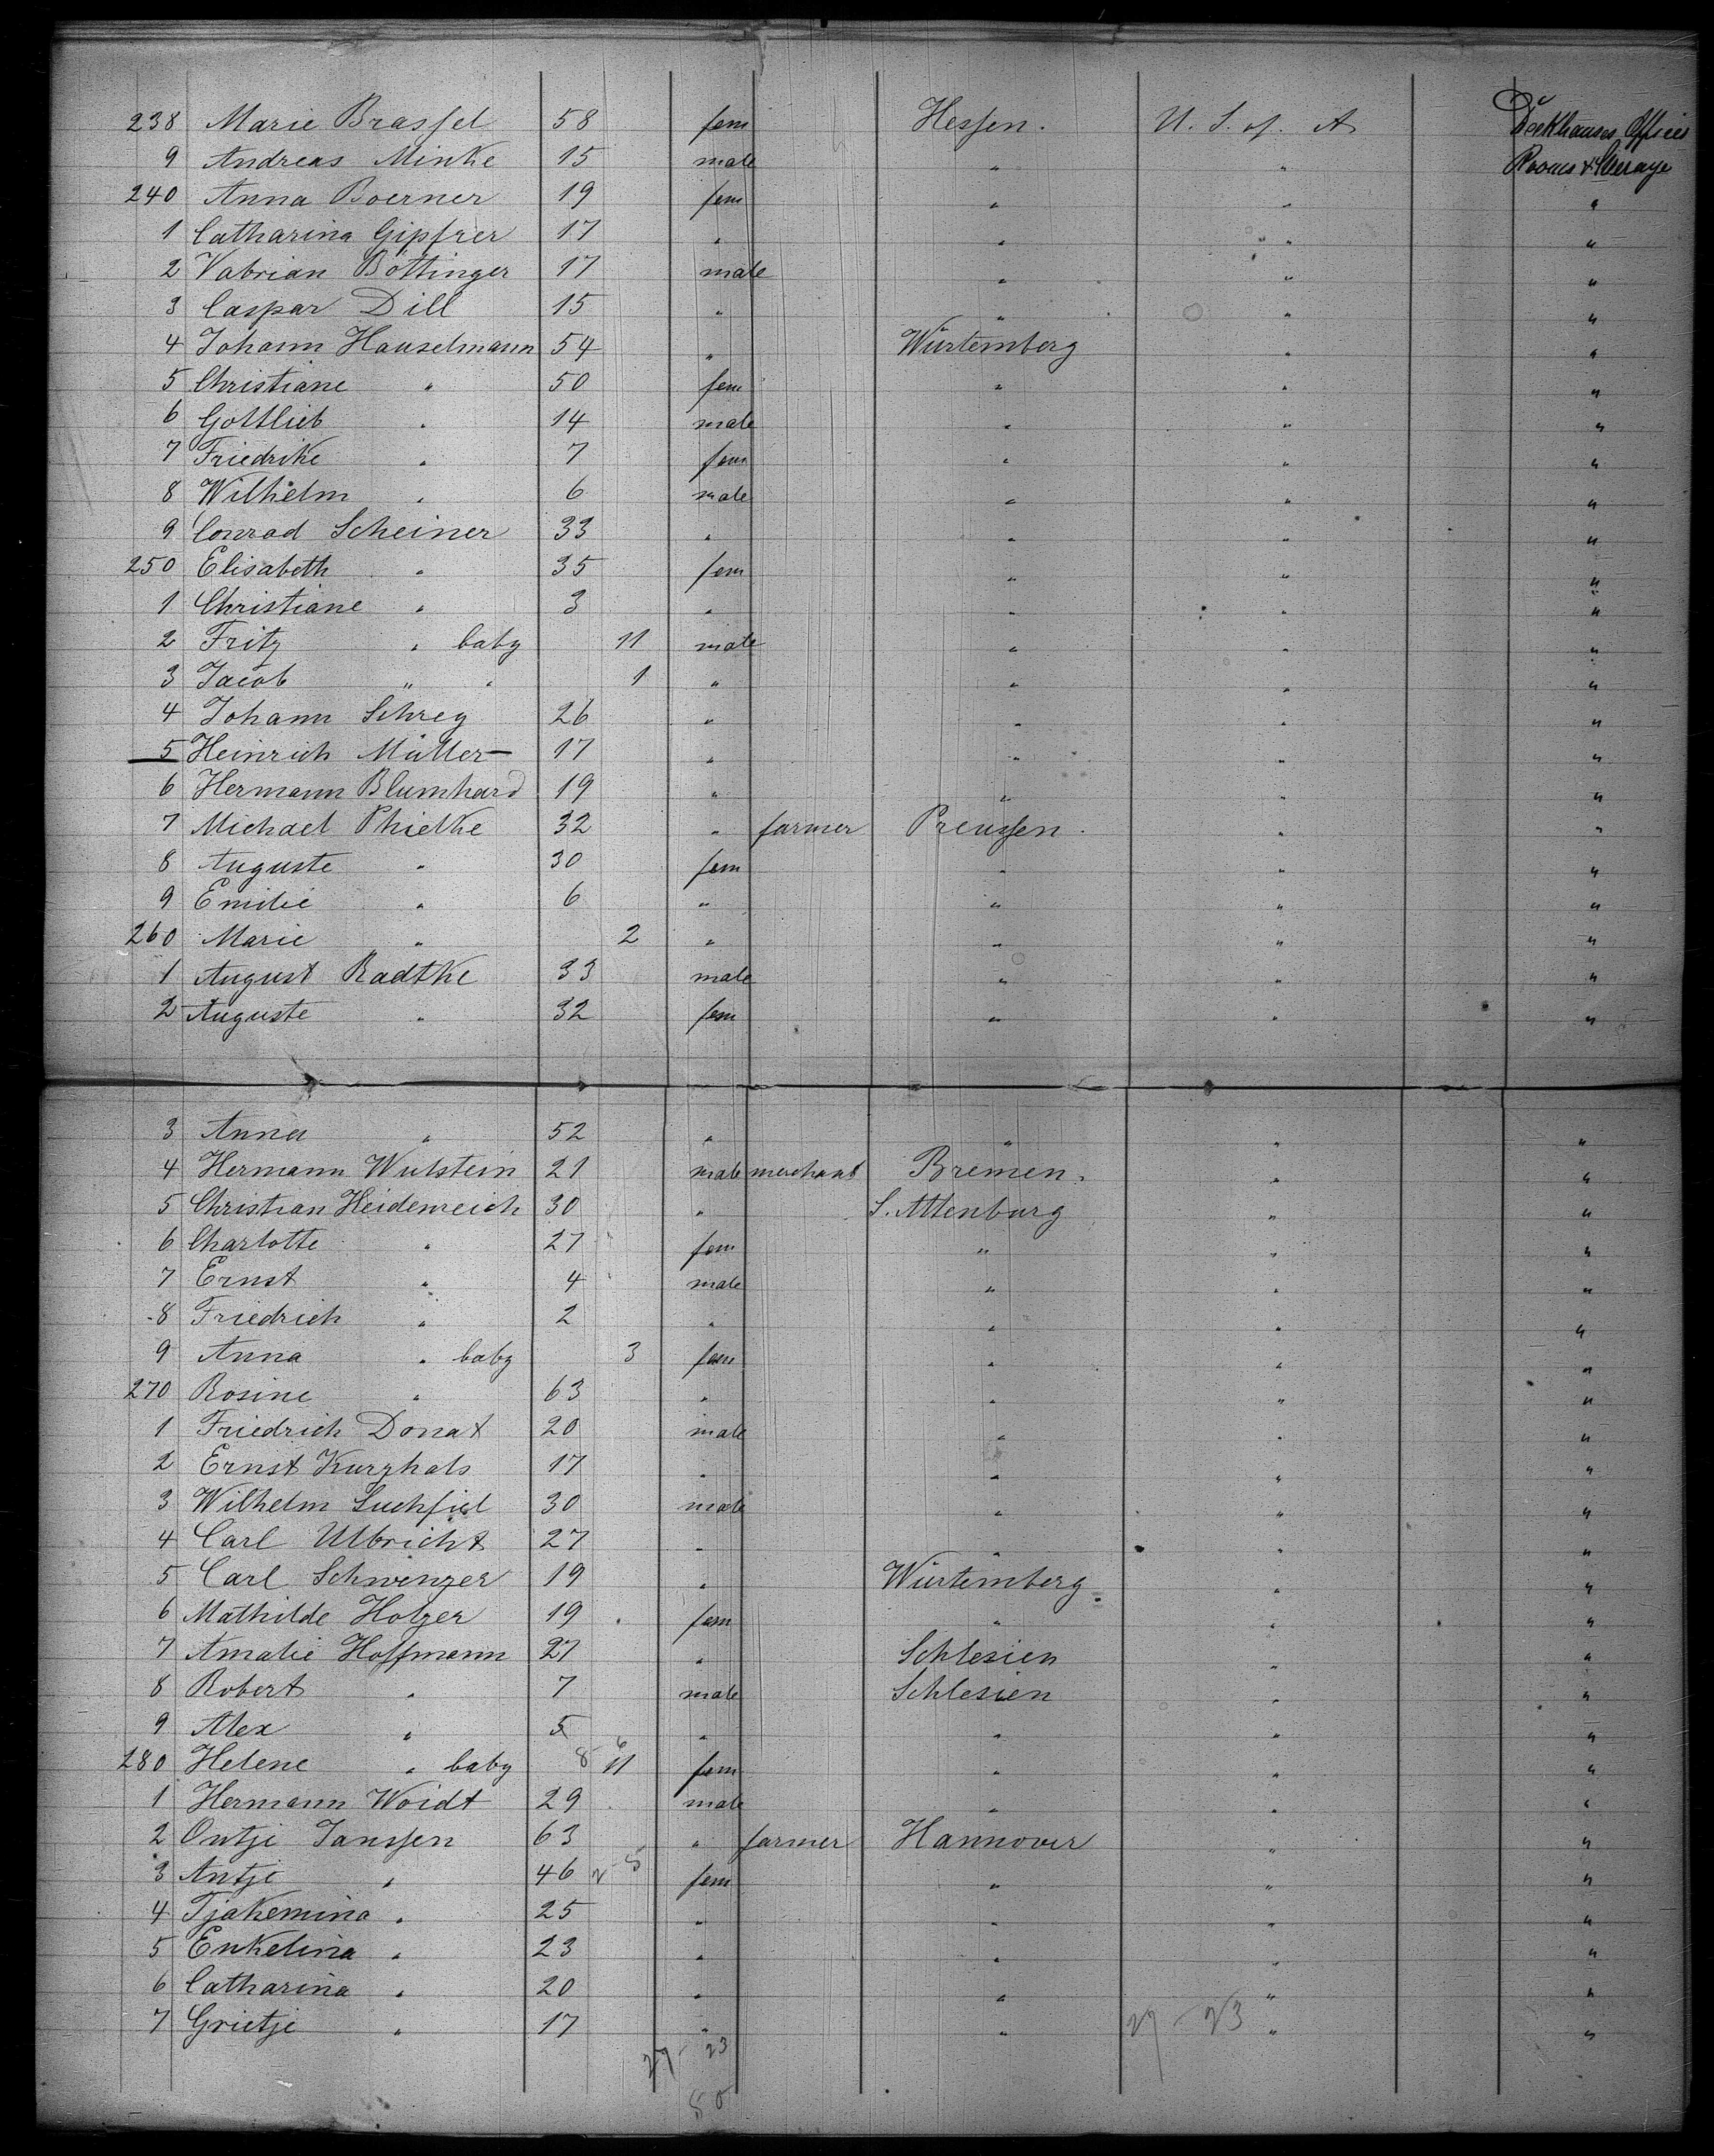 238 Marie Brassel 58 fem Hessen. U. S. of. A Deckhouses Officer
9 Andreas Minke 15 male " " Rooms & Steerage
240 Anna Boerner 19 fem " " "
1 Catharina Gipfrer 17 " " " "
2 Vabrian Böttinger 17 male " " "
3 Caspar Dill 15 " " " "
4 Johann Hauselmann 54 " Würtemberg " "
5 Christiane " 50 fem " " "
6 Gottlieb " 14 male " " "
7 Friedrike " 7 fem " " "
8 Wilhelm " 6 male " " "
9 Conrad Scheiner 33 " " " "
250 Elisabeth " 35 fem " " "
1 Christiane " 3 " " " "
2 Fritz " baby 11 male " " "
3 Jacob " " 1 " " " "
4 Johann Schreg 26 " " " "
5 Heinrich Müller 17 " " " "
6 Hermann Blumhard 19 " " " "
7 Michael Phielke 32 " farmer Preussen. " "
8 Auguste " 30 fem " " "
9 Emilie " 6 " " " "
260 Marie " 2 " " " "
1 August Radtke 33 male " " "
2 Auguste " 32 fem " " "
3 Anna " 52 " " " "
4 Hermann Wulstein 21 male merchant Bremen. " "
5 Christian Heidenreich 30 " S. Altenburg " "
6 Charlotte " 27 fem " " "
7 Ernst " 4 male " " "
8 Friedrich " 2 " " " "
9 Anna " baby 3 fem " " "
270 Rosine " 63 " " " "
1 Friedrich Donat 20 male " " "
2 Ernst Kurzhals 17 " " " "
3 Wilhelm 30 male " " "
4 Carl Ulbricht 27 " " " "
5 Carl Schwenzer 19 " Würtemberg. " "
6 Mathilde Holzer 19 fem " " "
7 Amalie Hoffmann 27 " Schlesien " "
8 Robert " 7 male Schlesien " "
9 Alex " 5 " " " "
280 Helene " baby 8 6 11 fem " " "
1 Hermann Woidt 29 male " " "
2 Ontje Janssen 63 " farmer Hannover " "
3 Antje " 46 2 5 fem " " "
4 Tjakemina " 25 " " " "
5 Enkelina " 23 " " " "
6 Catharina " 20 " " " "
7 Grietje " 17 " " 27 - 23 " "
27 - 23
50